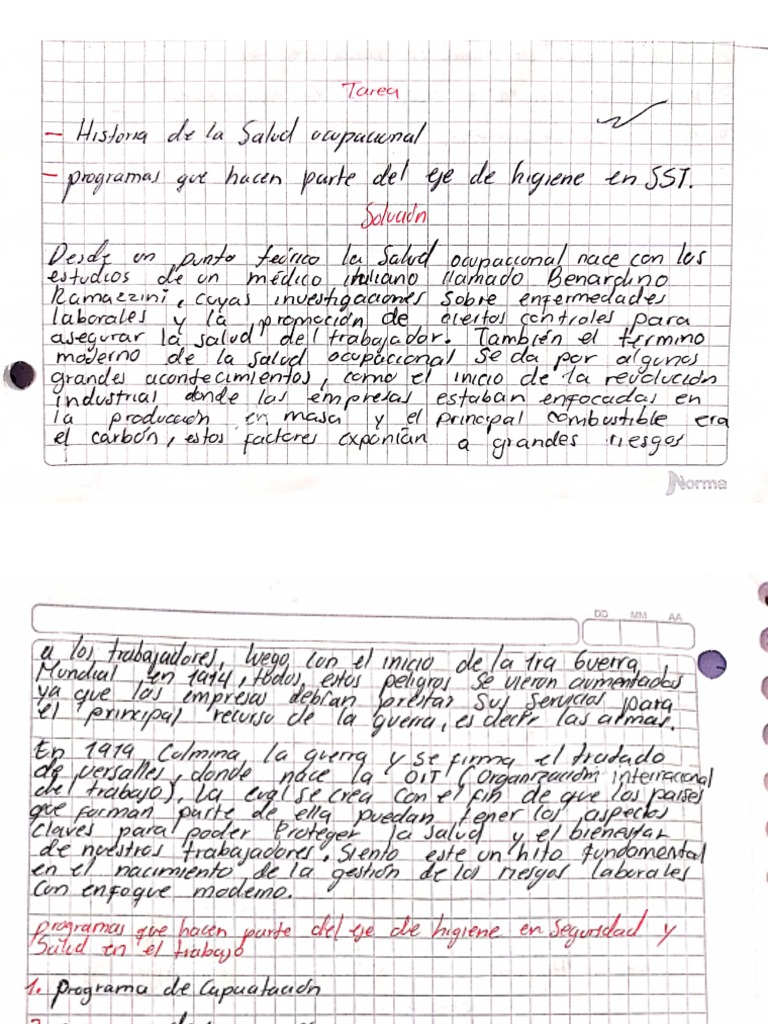 Tarea
- Historia de la Salud ocupacional
- programas que hacen parte del eje de higiene en SST.
Solución
Desde un punto teórico la Salud ocupacional nace con los
estudios de un médico italiano llamado Benardino
Ramazzini, cuyas investigaciones sobre enfermedades
laborales y la promoción de ciertos controles para
asegurar la salud del trabajador. También el termino
moderno de la salud ocupacional se da por algunos
grandes acontecimientos, como el inicio de la revolución
industrial donde las empresas estaban enfocadas en
la producción en masa y el principal combustible era
el carbón, estos factores exponían a grandes riesgos
Norma
DD MM AA
a los trabajadores, luego con el inicio de la 1ra Guerra
Mundial en 1914, todos estos peligros se vieron aumentados
ya que las empresas debían prestar sus servicios para
el principal recurso de la guerra, es decir las armas.
En 1919 Culmina la guerra y se firma el tratado
de versalles, donde nace la OIT (Organización internacional
del trabajo), La cual se crea con el fin de que los países
que forman parte de ella puedan tener los aspectos
claves para poder Proteger la salud y el bienestar
de nuestros trabajadores. Siento este un hito fundamental
en el nacimiento de la gestión de los riesgos laborales
con enfoque moderno.
programas que hacen parte del eje de higiene en Seguridad y
Salud en el trabajo
1. Programa de Capacitación